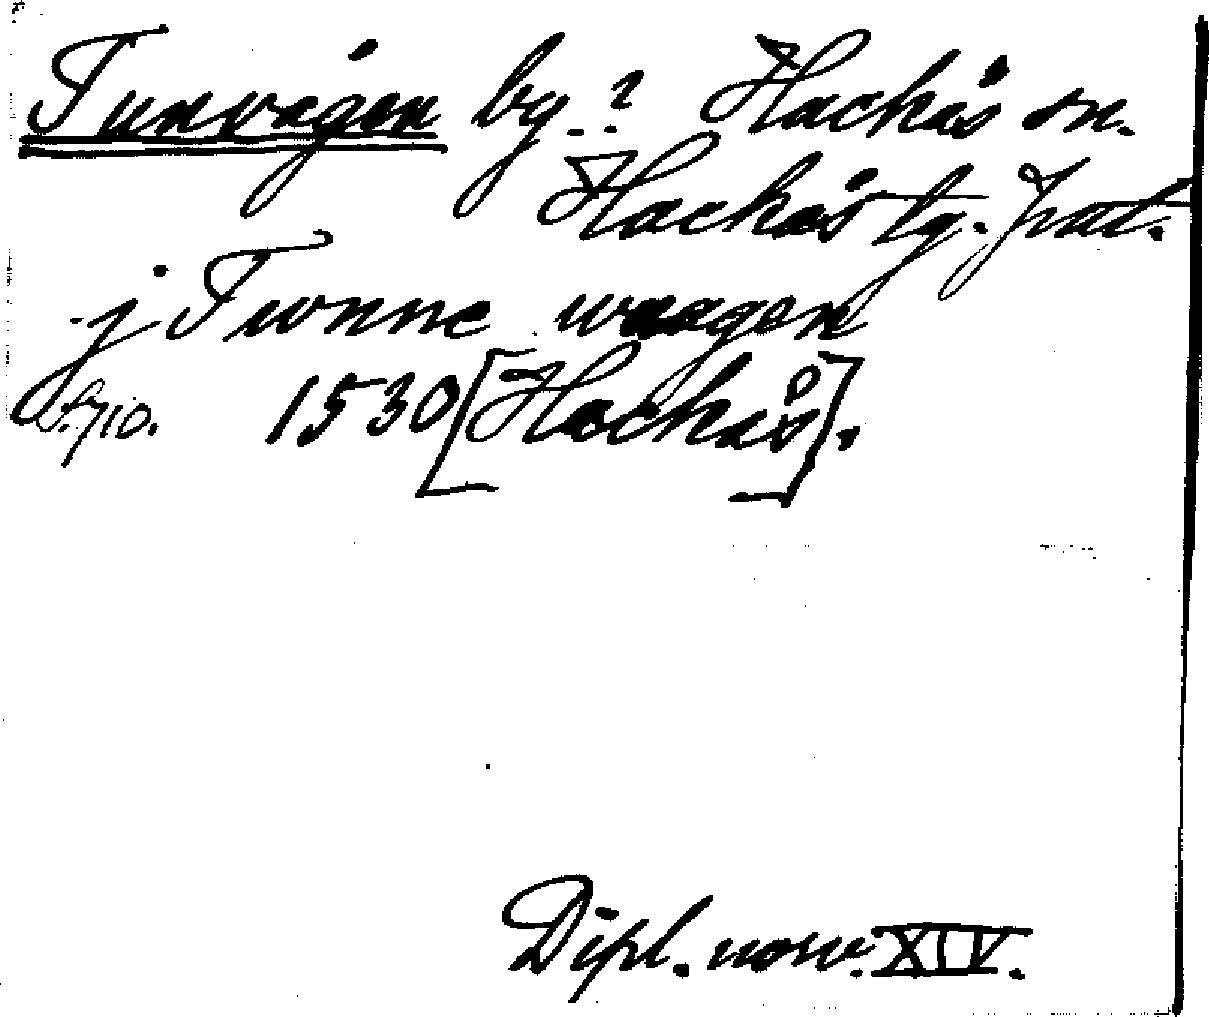 Tunvågen by.? Hackås sn.
Hackås tg. Jmtl.
j Twnne waagen
s. 710. 1530 [Hackås].
Dipl. norv. XIV.